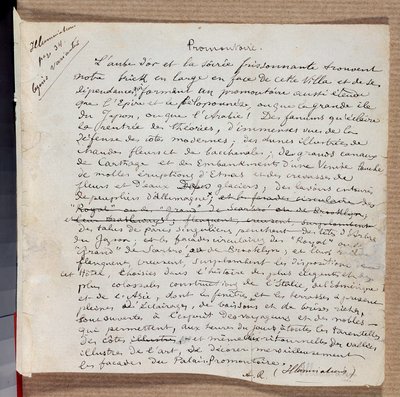 Illuminations
pag 34
Promontoire.
L'aube d'or et la soirée frissonnante trouvent
notre brick en large en face de cette Villa et de ses
dépendances, formant un promontoire aussi étendu
que l'Epire et le Péloponnèse, ou que la grande île
du Japon, ou que l'Arabie! Des fanums qu'éclaire
la rentrée des théories, d'immenses vues de la
défense des côtes modernes; des dunes illustrées de
chaudes fleurs et de bacchanales; des grands canaux
de Carthage et des Embankments d'une Venise louche
de molles éruptions d'Etnas et des crevasses de
fleurs et d'eaux des glaciers; des lavoirs entourés
de peupliers d'Allemagne; et les façades circulaires des
"Royal" ou des "Grand" de Scarbro' ou de Brooklyn,
des talus de parcs singuliers penchant des têtes d'Arbre
du Japon; et les façades circulaires des "Royal" ou des
"Grand" de Scarbro' ou de Brooklyn; et leurs
flanquent, creusent, surplombent les dispositions
cet Hôtel, choisies dans l'histoire des plus élégantes et des
plus colossales constructions de l'Italie, de l'Amérique
et de l'Asie, dont les fenêtres et les terrasses à présent
pleines d'éclairages, de boissons et de brises riches,
sont ouvertes à l'esprit des voyageurs et des nobles
qui permettent, aux heures du jour, à toutes les tarentelles
des côtes et même aux ritournelles des vallées
illustres de l'art, de décorer merveilleusement
les façades du Palais-Promontoire.
A. R. (Illuminations)